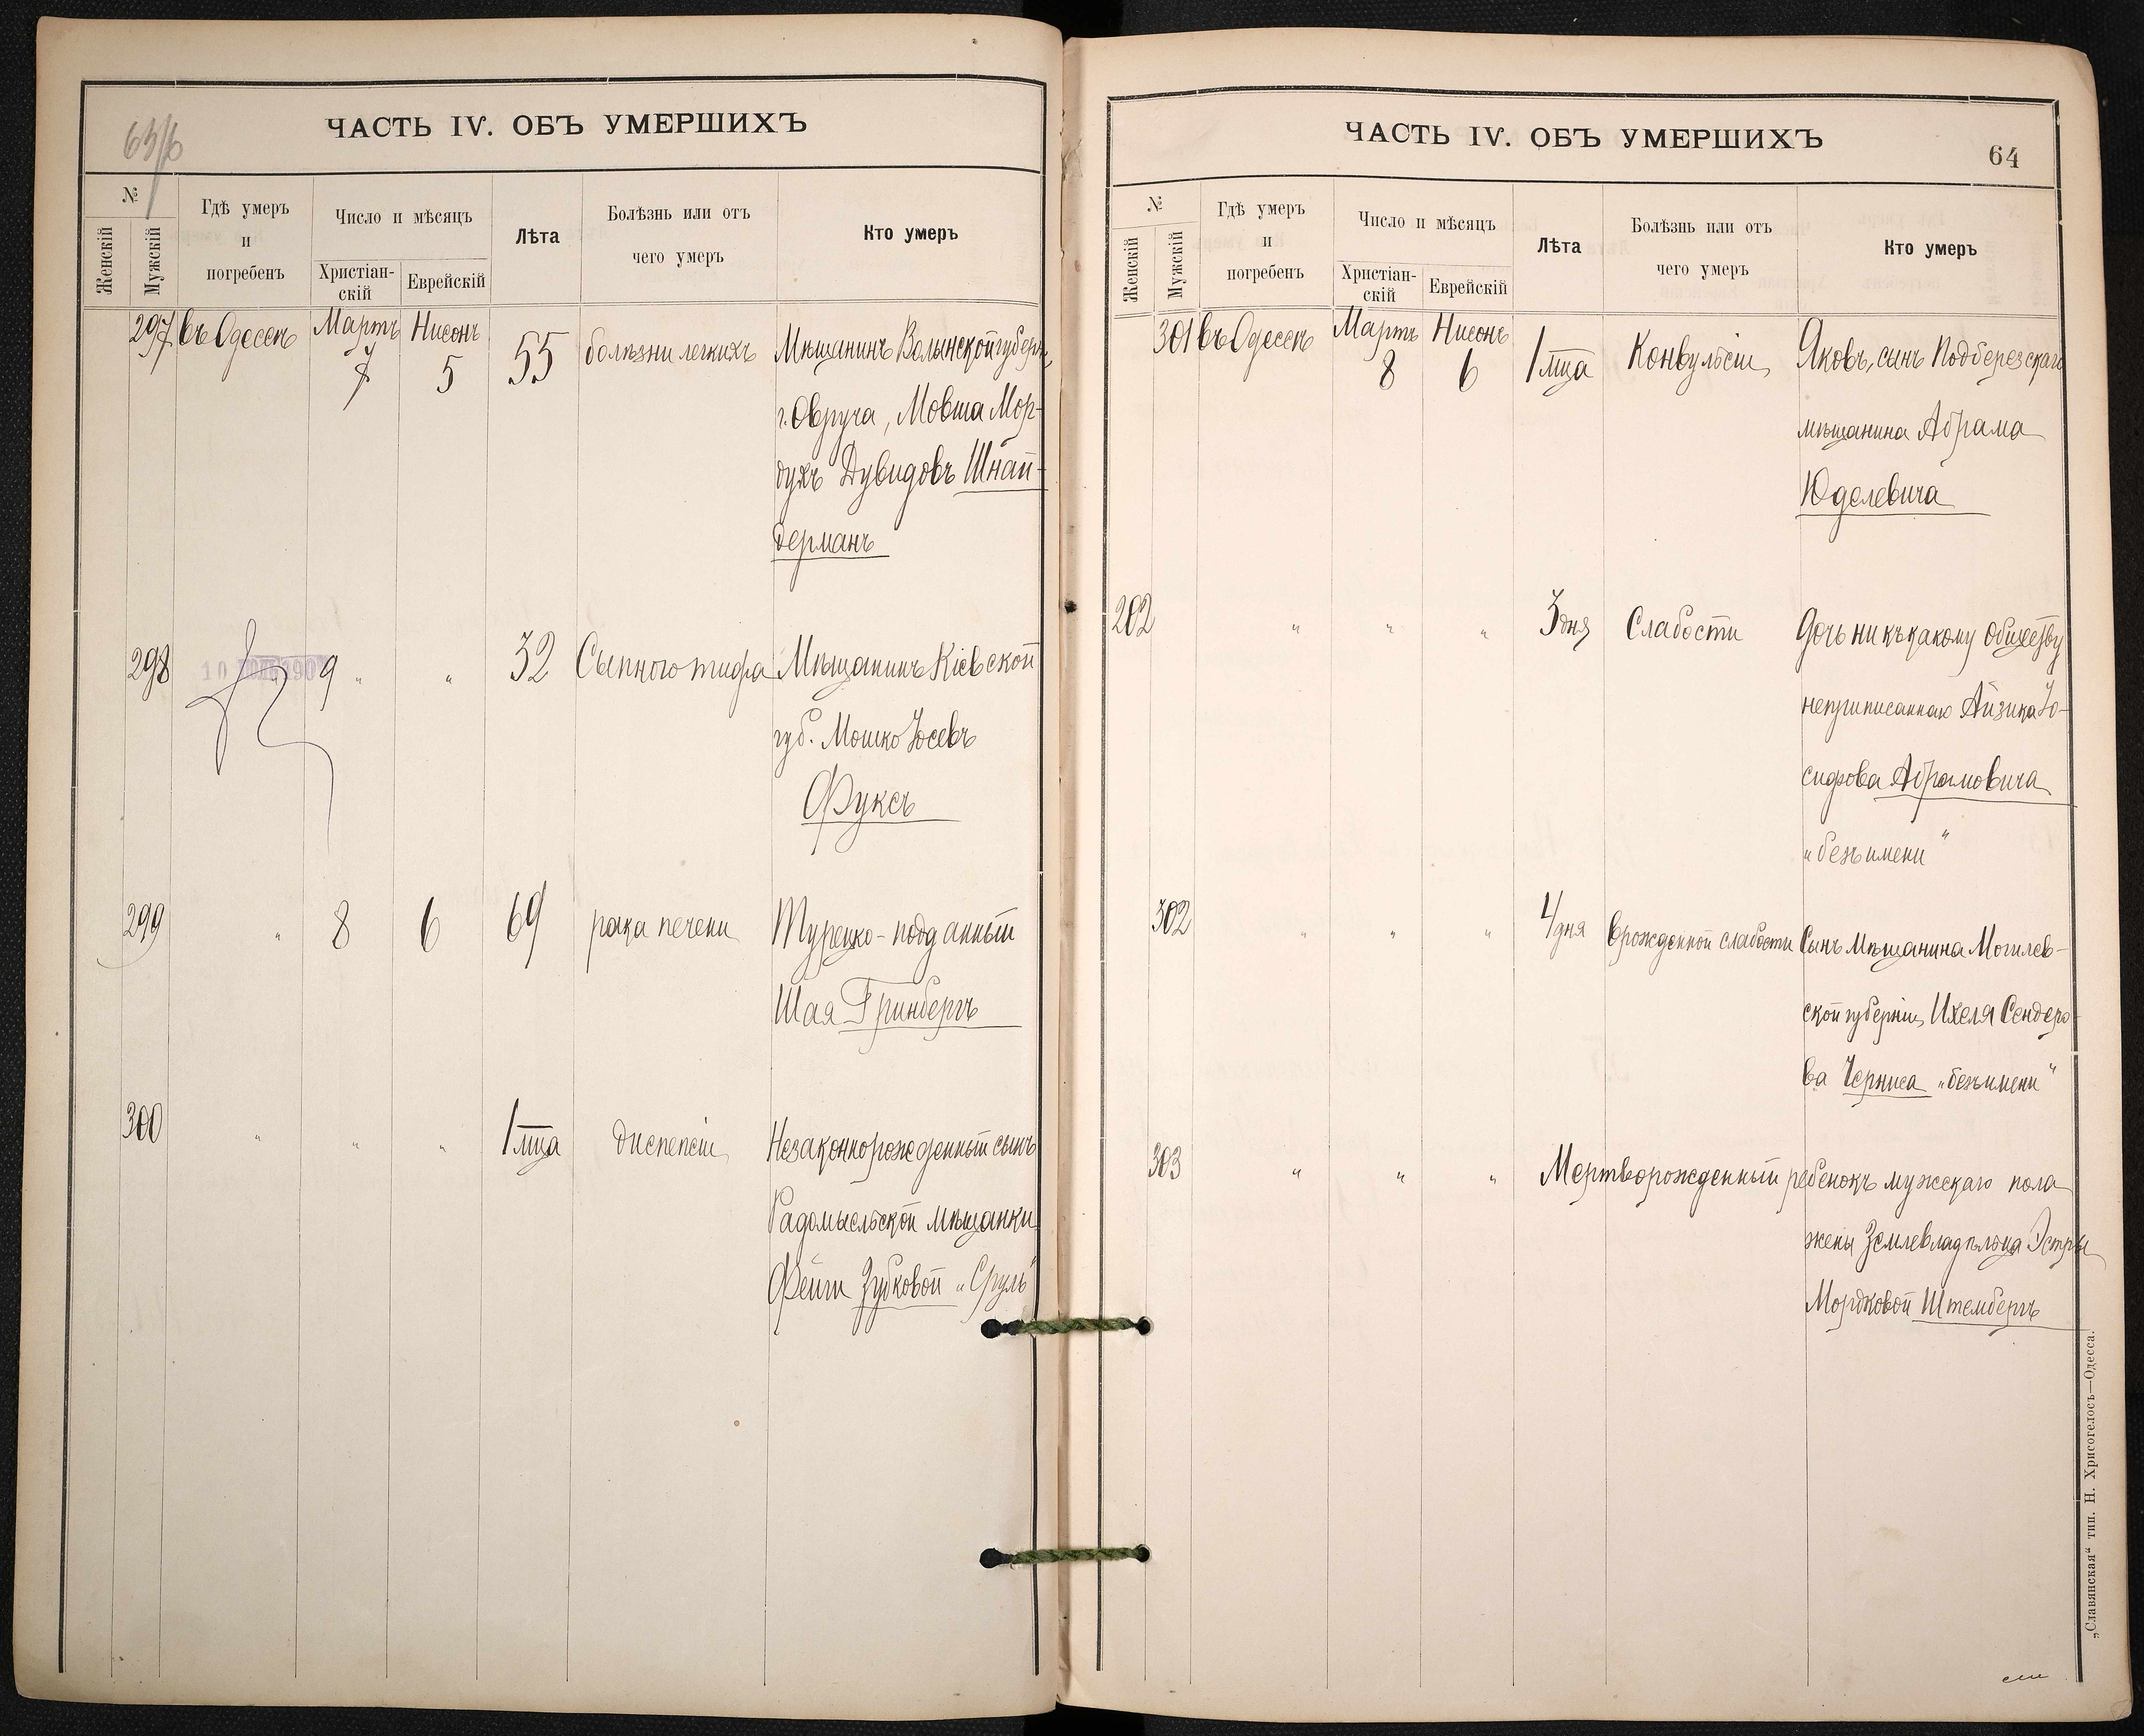 63/б
ЧАСТЬ IV. ОБЪ УМЕРШИХЪ
№
Женскій
Мужскій
Гдѣ умеръ
и
погребенъ
Число и мѣсяцъ
Христіан-
скій
Еврейскій
Лѣта
Болѣзнь или отъ
чего умеръ
Кто умеръ
297 въ Одессѣ Мартъ 7 Нисонъ 5 55 болѣзни легкихъ Мѣщанинъ Волынской губерн.,
г. Овруча, Мовша Мор-
духъ Дувидовъ Шнай-
дерманъ
298 9 " " 32 Сыпного тифа Мѣщанинъ Кіевской
губ. Мошко Іосевъ
Фуксъ
299 " 8 6 69 рака печени Турецко-подданный
Шая Гринбергъ
300 " " " 1 мца диспепсіи Незаконнорожденный сынъ
Радомысльской мѣщанки
Фейги Зубковой „Сруль"
ЧАСТЬ IV. ОБЪ УМЕРШИХЪ
64
№
Женскій
Мужскій
Гдѣ умеръ
и
погребенъ
Число и мѣсяцъ
Христіан-
скій
Еврейскій
Лѣта
Болѣзнь или отъ
чего умеръ
Кто умеръ
301 въ Одессѣ Мартъ 8 Нисонъ 6 1 мца Конвульсіи Яковъ, сынъ Подберезскаго
мѣщанина Абрама
Юделевича
202 " " " 3 дня Слабости Дочь ни къ какому обществу
неприписаннаго Айзика Іо-
сифова Абрамовича
„безъ имени"
302 " " " 4 дня врожденной слабости Сынъ мѣщанина Могилев-
ской губерніи, Ихеля Сендеро-
ва Черниса „безъ имени"
303 " " " Мертворожденный ребенокъ мужскаго пола
жены Землевладѣльца Эстры
Мордковой Штембергъ
„Славянская“ тип. Н. Хрисогелосъ—Одесса.